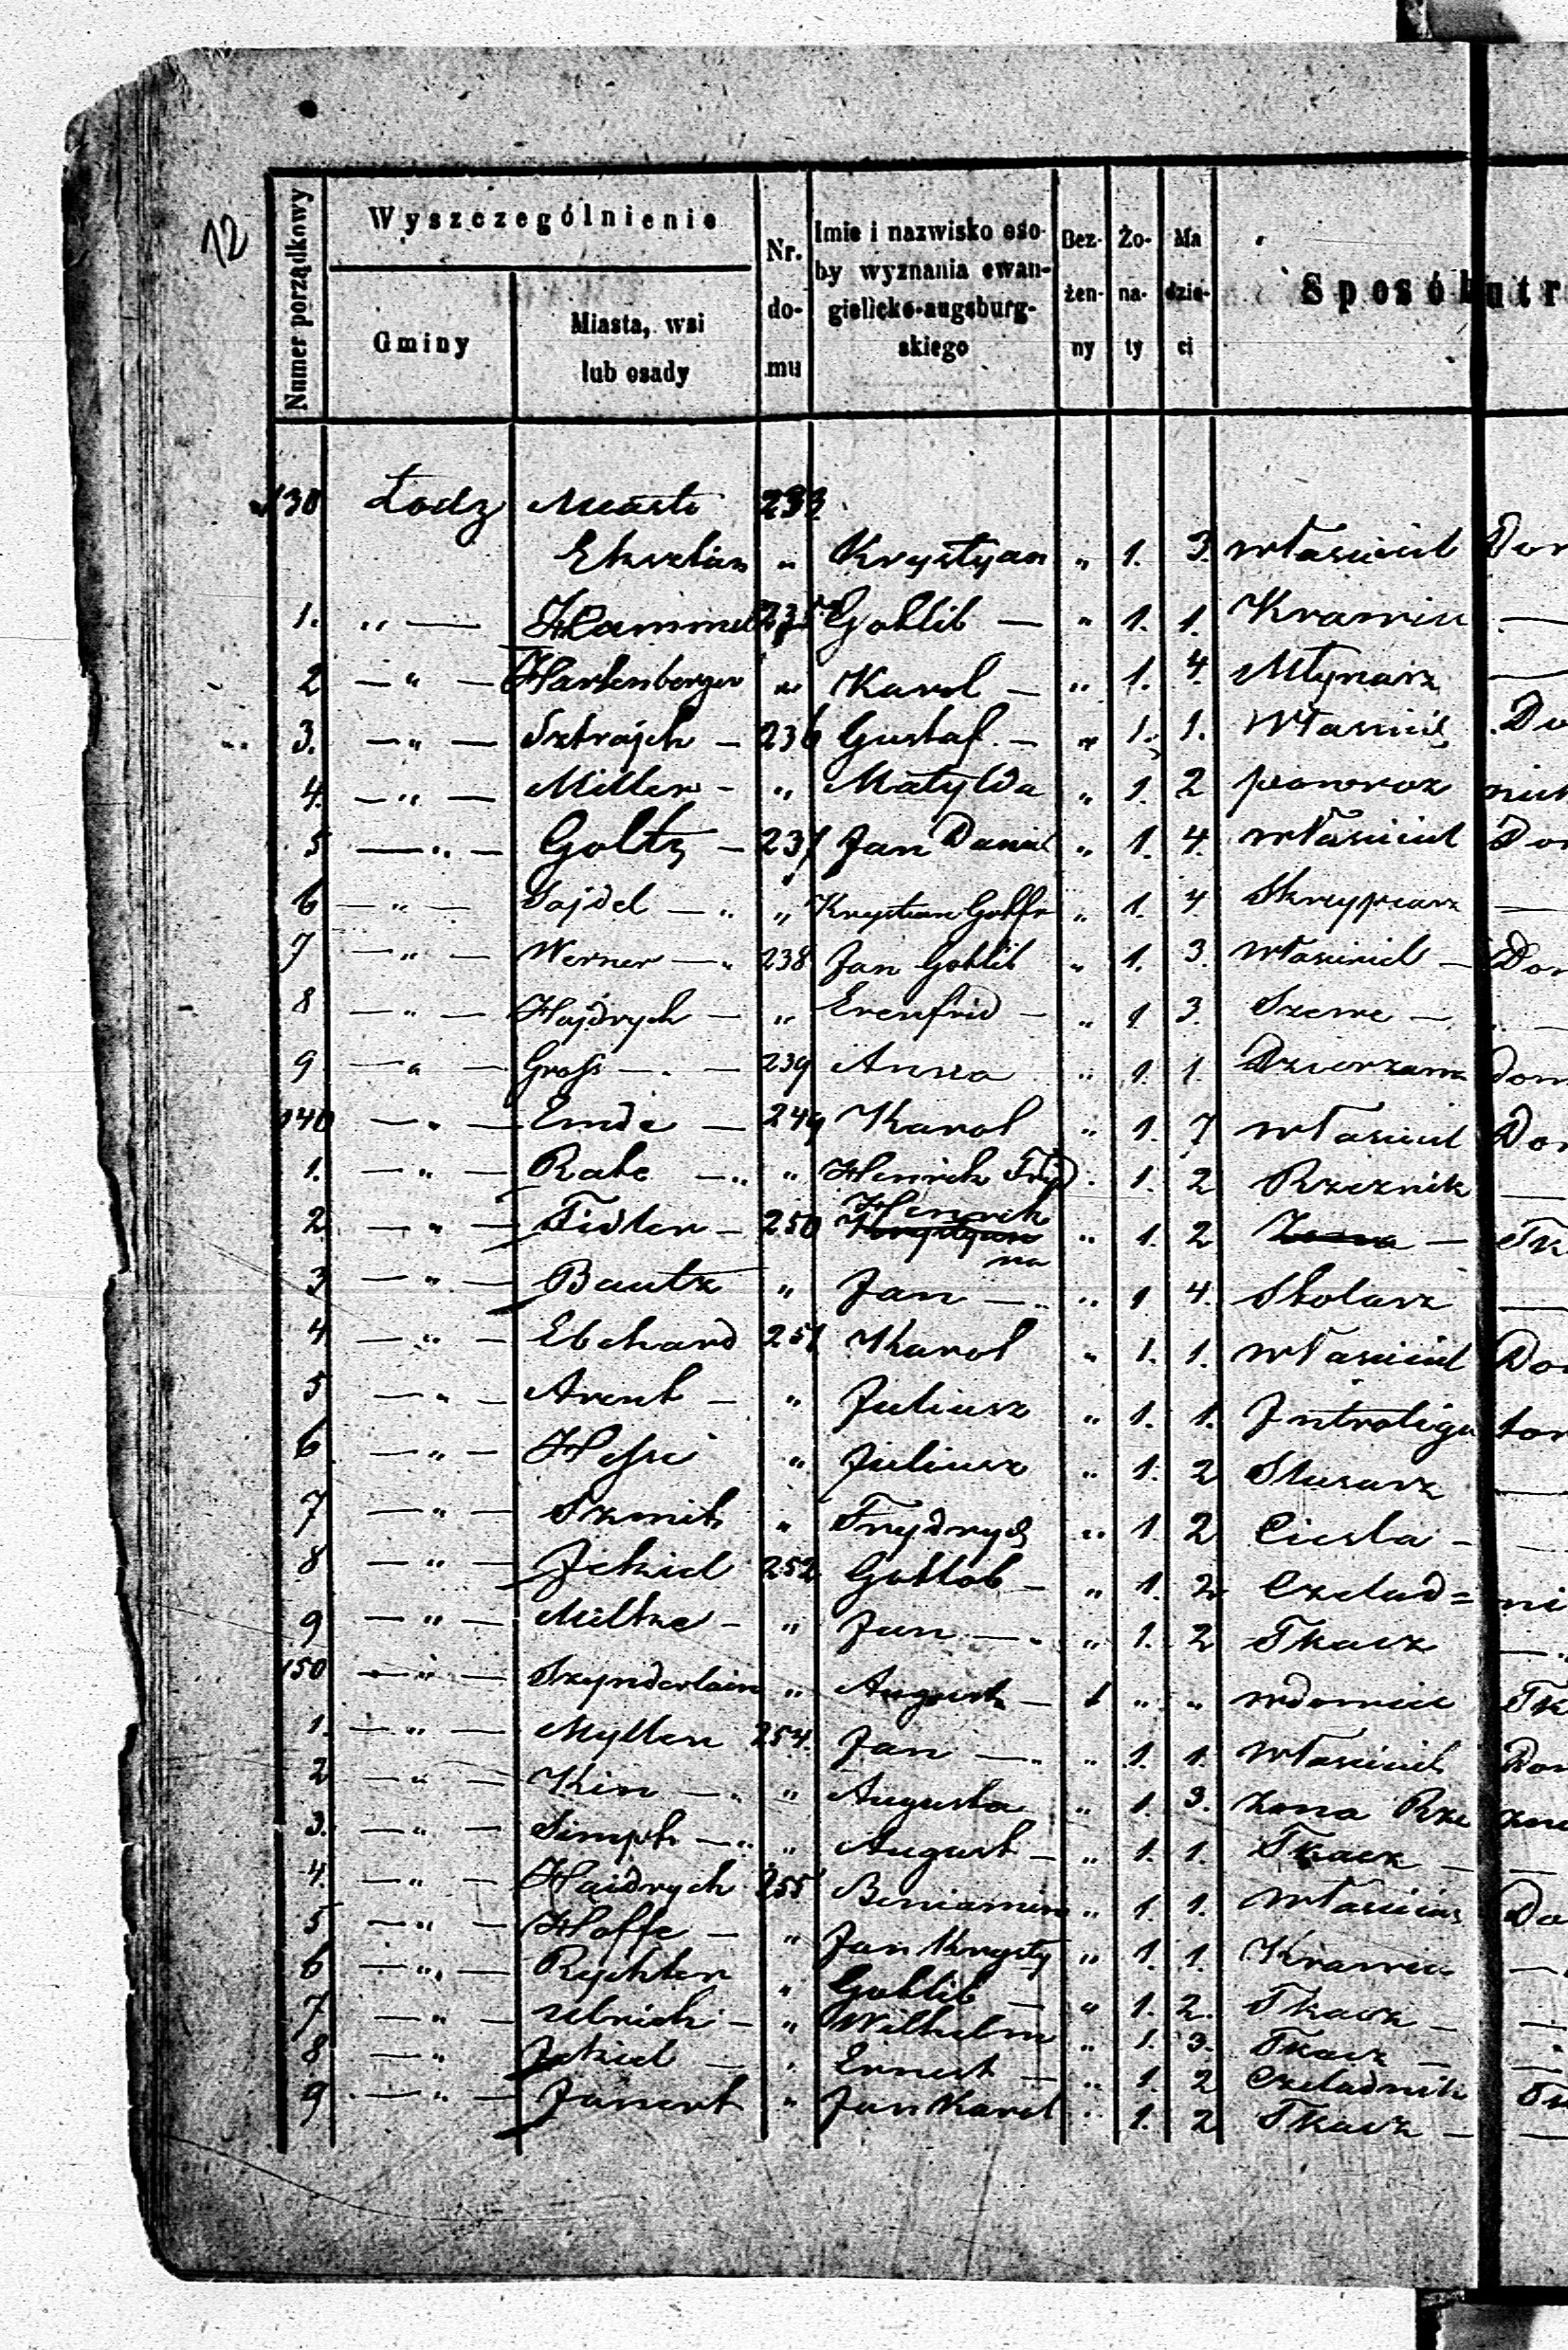 12
Numer porządkowy
Wyszczególnienie
Gminy
Miasta, wsi
lub osady
Nr.
do-
mu
Imie i nazwisko oso-
by wyznania ewan-
gielicko-augsburg-
skiego
Bez-
żen-
ny
Żo-
na-
ty
Ma
dzie-
ci
Sposób utr
130 Łodz Miasto 233
" Krystyan " 1. 3. własciciel Dom
1. " — Hammel 235 Gotlib — " 1. 1. Krawiec —
2 — " — Hartenberger " Karol — " 1. 4. Młynarz —
3. — " — Sztrajch — 236 Gustaf. — " 1. 1. Własciciel Do
4. — " — Miller — " Matylda " 1. 2 powroz nik
5 — " — Goltz — 237 Jan Daniel " 1. 4. własciciel Do
6 — " — Sajdel — " " Krystian Gottfr " 1. 4. —
7 — " — Werner — " 238 Jan Gotlib " 1. 3. własciciel — Dom
8 — " — Hajdrych — " Erenfrid — " 1. 3. Szewc — —
9 — " — Gross — 239 Anna " 1. 1. Dom
140 — " — Emde — 249 Karol " 1. 7 własciciel Dom
1. — " — Rahe — " " Henrich Fryd " 1. 2 Rzeznik —
2. — " — Fidler — 250 Henrich " 1. 2 — Tk
3 — " — Bautz " Jan — " 1 4. Stolarz —
4 — " — Ebchard 251 Karol " 1. 1. własciciel Dom
5 — " — Arent — " Juliusz " 1. 1. Introliga tor
6 — " — Hesse " Juliusz " 1. 2 Slusarz —
7 — " — Szmit " Frydrych " 1 2 Ciesla — —
8 — " — Jekiel 252 Gottlob — " 1. 2 Czelad= ni
9 — " — Miltze — " Jan — " 1. 2 Tkacz —
150 — " — Szynderlain " August — 1 " " wdowiec Tk
1. — " — Myller 254. Jan — " 1. 1. Własciciel Dom
2 — " — Kin — " " Augusta " 1. 3. zona Rze zni
3. — " — Simph — " " August — " 1. 1. Tkacz — —
4. — " — Haidrych 255 Beniamin " 1. 1. Własciciel Do
5 — " — Hoffe — " Jan Krysty " 1. 1. Krawiec —
6 — " — Rychter " Gotlib — " 1. 2. Tkacz — —
7 — " — Ulrich — " Wilhelm " 1. 3. Tkacz — —
8 — " Jekiel — " Ernest — " 1. 2 Czeladnik Tk
9 — " — Janert " Jan Karol " 1. 2 Tkacz — —